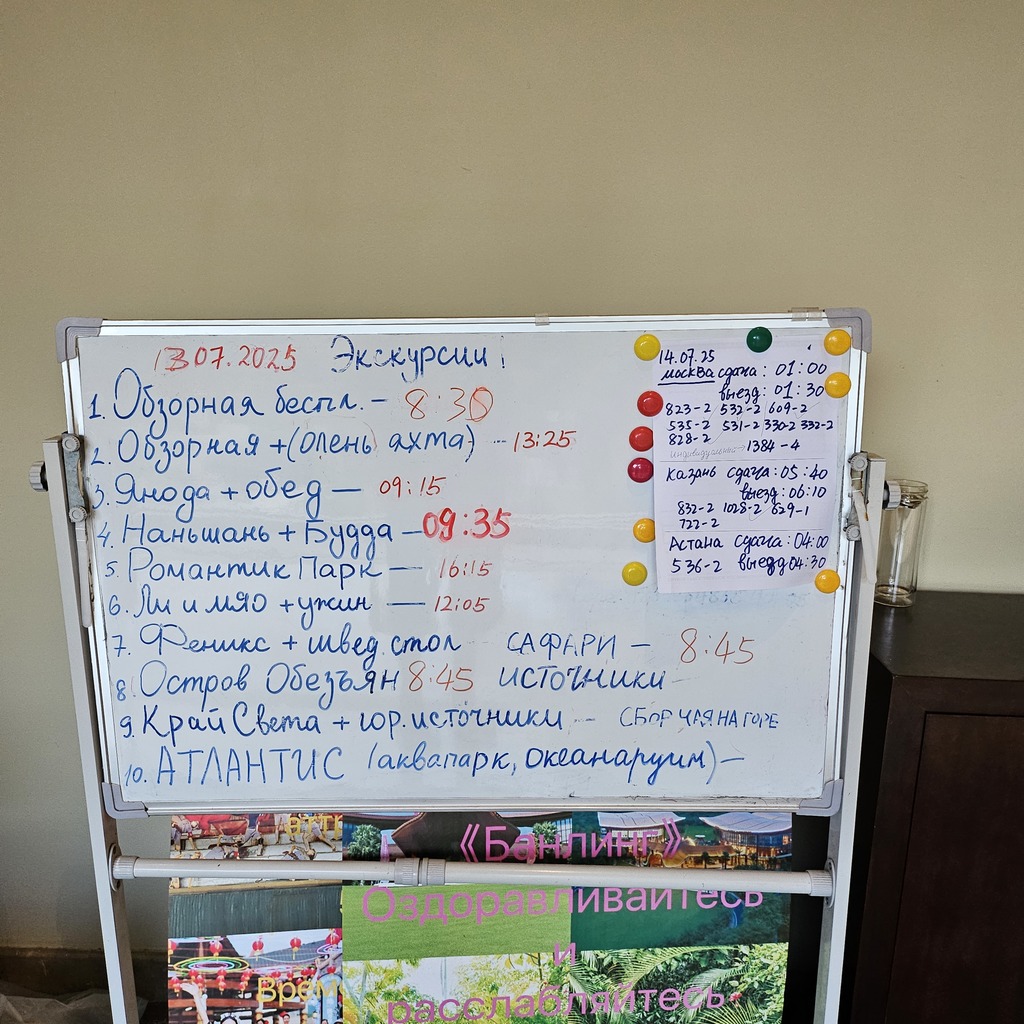 13.07.2025 Экскурсии!
1. Обзорная беспл. - 8:30
2. Обзорная + (олень яхта) - 13:25
3. Янода + обед — 09:15
4. Наньшань + Будда — 09:35
5. Романтик Парк — 16:15
6. Ли и мяо + ужин — 12:05
7. Феникс + швед. стол САФАРИ — 8:45
8. Остров Обезьян 8:45 ИСТОЧНИКИ -
9. Край Света + гор. источники - СБОР ЧАЯ НА ГОРЕ
10. АТЛАНТИС (аквапарк, океанариум) —
14.07.25
Москва сдача: 01:00
выезд: 01:30
823-2 532-2 609-2
535-2 531-2 330-2 332-2
828-2
индивидуально 1384-4
Казань сдача: 05:40
выезд: 06:10
832-2 1028-2 629-1
722-2
Астана сдача: 04:00
536-2 выезд 04:30
《Банлинг》
Оздоравливайтесь
и
расслабляйтесь